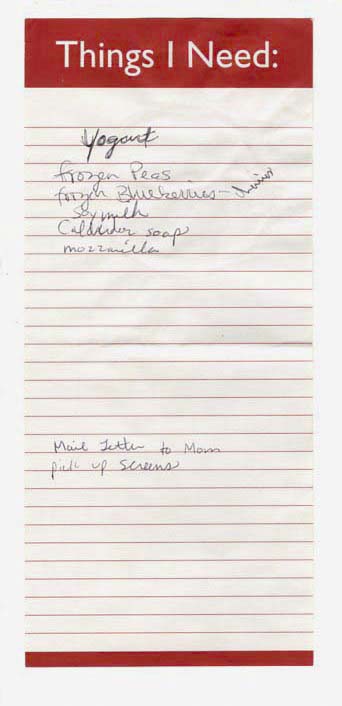 Things I Need:
Yogurt
frozen Peas
frozen Blueberries -
Soymilk
soap
mozzarilla
Mail Letter to Mom
pick up screens